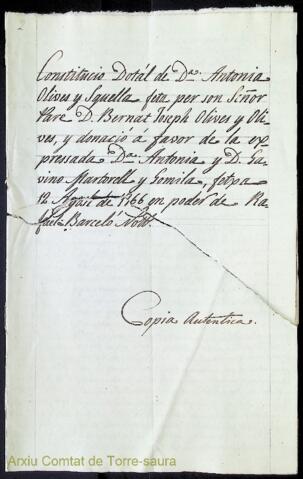 Constitucio Dotál de Dª. Antonia
Olives y Squella feta per son Señor
Pare D. Bernat Joseph Olives y Oli-
ves, y donació á favor de la ex-
pressada Dª. Antonia y D. Ga-
vino Martorell y Gomila, fetpa
12 1766 en poder de Ra-
fael Barceló Nott.
Copia Autentica.
Arxiu Comtat de Torre-saura